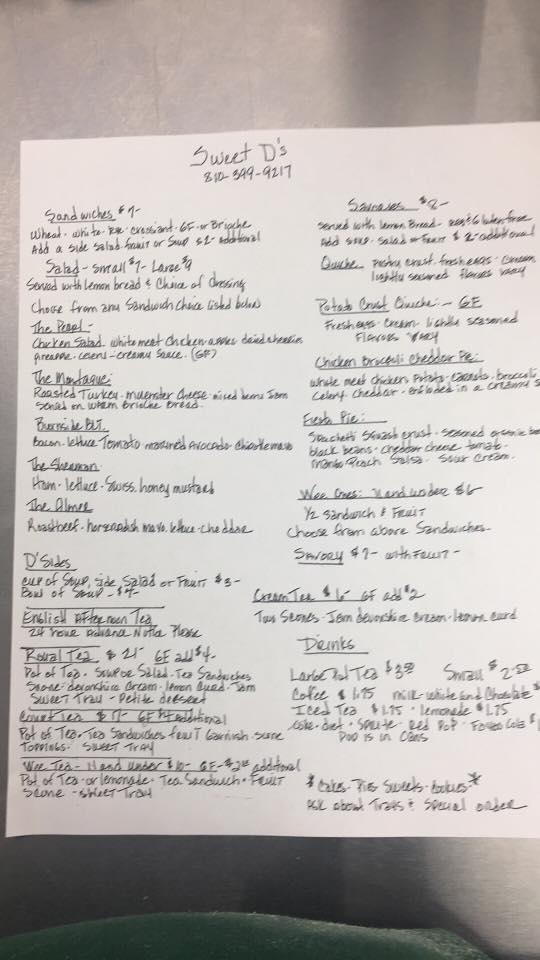 Sweet D's
810-399-9217
Sandwiches $7-
Wheat - white - Rye - Croissant - GF - or Brioche
Add a side salad fruit or Soup $2- additional
Salad - small $7- Large $9
Served with lemon bread & Choice of dressing
Choose from any Sandwich Choice listed below
The Pearl -
Chicken Salad. white meet chicken - apples dried cherries
pineapple - celery - creamy sauce. (GF)
The Montague:
Roasted Turkey - muenster cheese - mixed berry Jam
Served on warm Brioche Bread.
Burnside BLT.
Bacon - lettuce Tomato - Avocado - Chipotle mayo
The Sherman
Ham - lettuce - Swiss. honey mustard
The
Roastbeef - horseradish mayo. lettuce - Cheddar
D'Sides
cup of Soup, side Salad or Fruit $3-
Bowl of Soup - $4-
English Afternoon Tea
24 hour Advance Notice Please
Royal Tea $21- GF add $4-
Pot of Tea - Soup or Salad - Tea Sandwiches
Scone - devonshire Cream - lemon Curd - Jam
Sweet Tray - Petite dessert
Court Tea $17- GF additional
Pot of Tea - Tea Sandwiches fruit Garnish - Scone
Toppings - Sweet Tray
Wee Tea - 11 and under $10- GF - additional
Pot of Tea - or lemonade - Tea Sandwich - Fruit
Scone - sweet Tray
Savories $8-
Served with lemon Bread -
Add soup - Salad or Fruit $2- additional
Quiche Pastry crust. fresh eggs - Cream
lightly seasoned flavors vary
Potato Crust Quiche - - GF
Fresh eggs - Cream - lightly seasoned
Flavors vary
Chicken Broccoli Cheddar Pie:
white meet chicken Potato - Carrots - broccoli
Celery Cheddar - enfolded in a creamy s
Fiesta Pie:
Spaghetti Squash crust - seasoned organic
black beans - cheddar cheese tomato -
mango Peach Salsa - Sour Cream.
Wee Ones: 11 and under $6
1/2 sandwich & Fruit
Choose from above Sandwiches -
Savory $7- with Fruit -
Cream Tea $6- GF add $2
Two Scones - Jam devonshire cream - lemon curd
Drinks
Large Pot Tea $3.50 Small $2.50
Coffee $1.75 milk - white and Chocolate $
Iced Tea $1.75 - lemonade $1.75
Coke - diet - Sprite - Red Pop - Faygo Cola $1
Pop is in Cans
*Cakes - Pies Sweets - Cookies - *
Ask about Trays & Special order